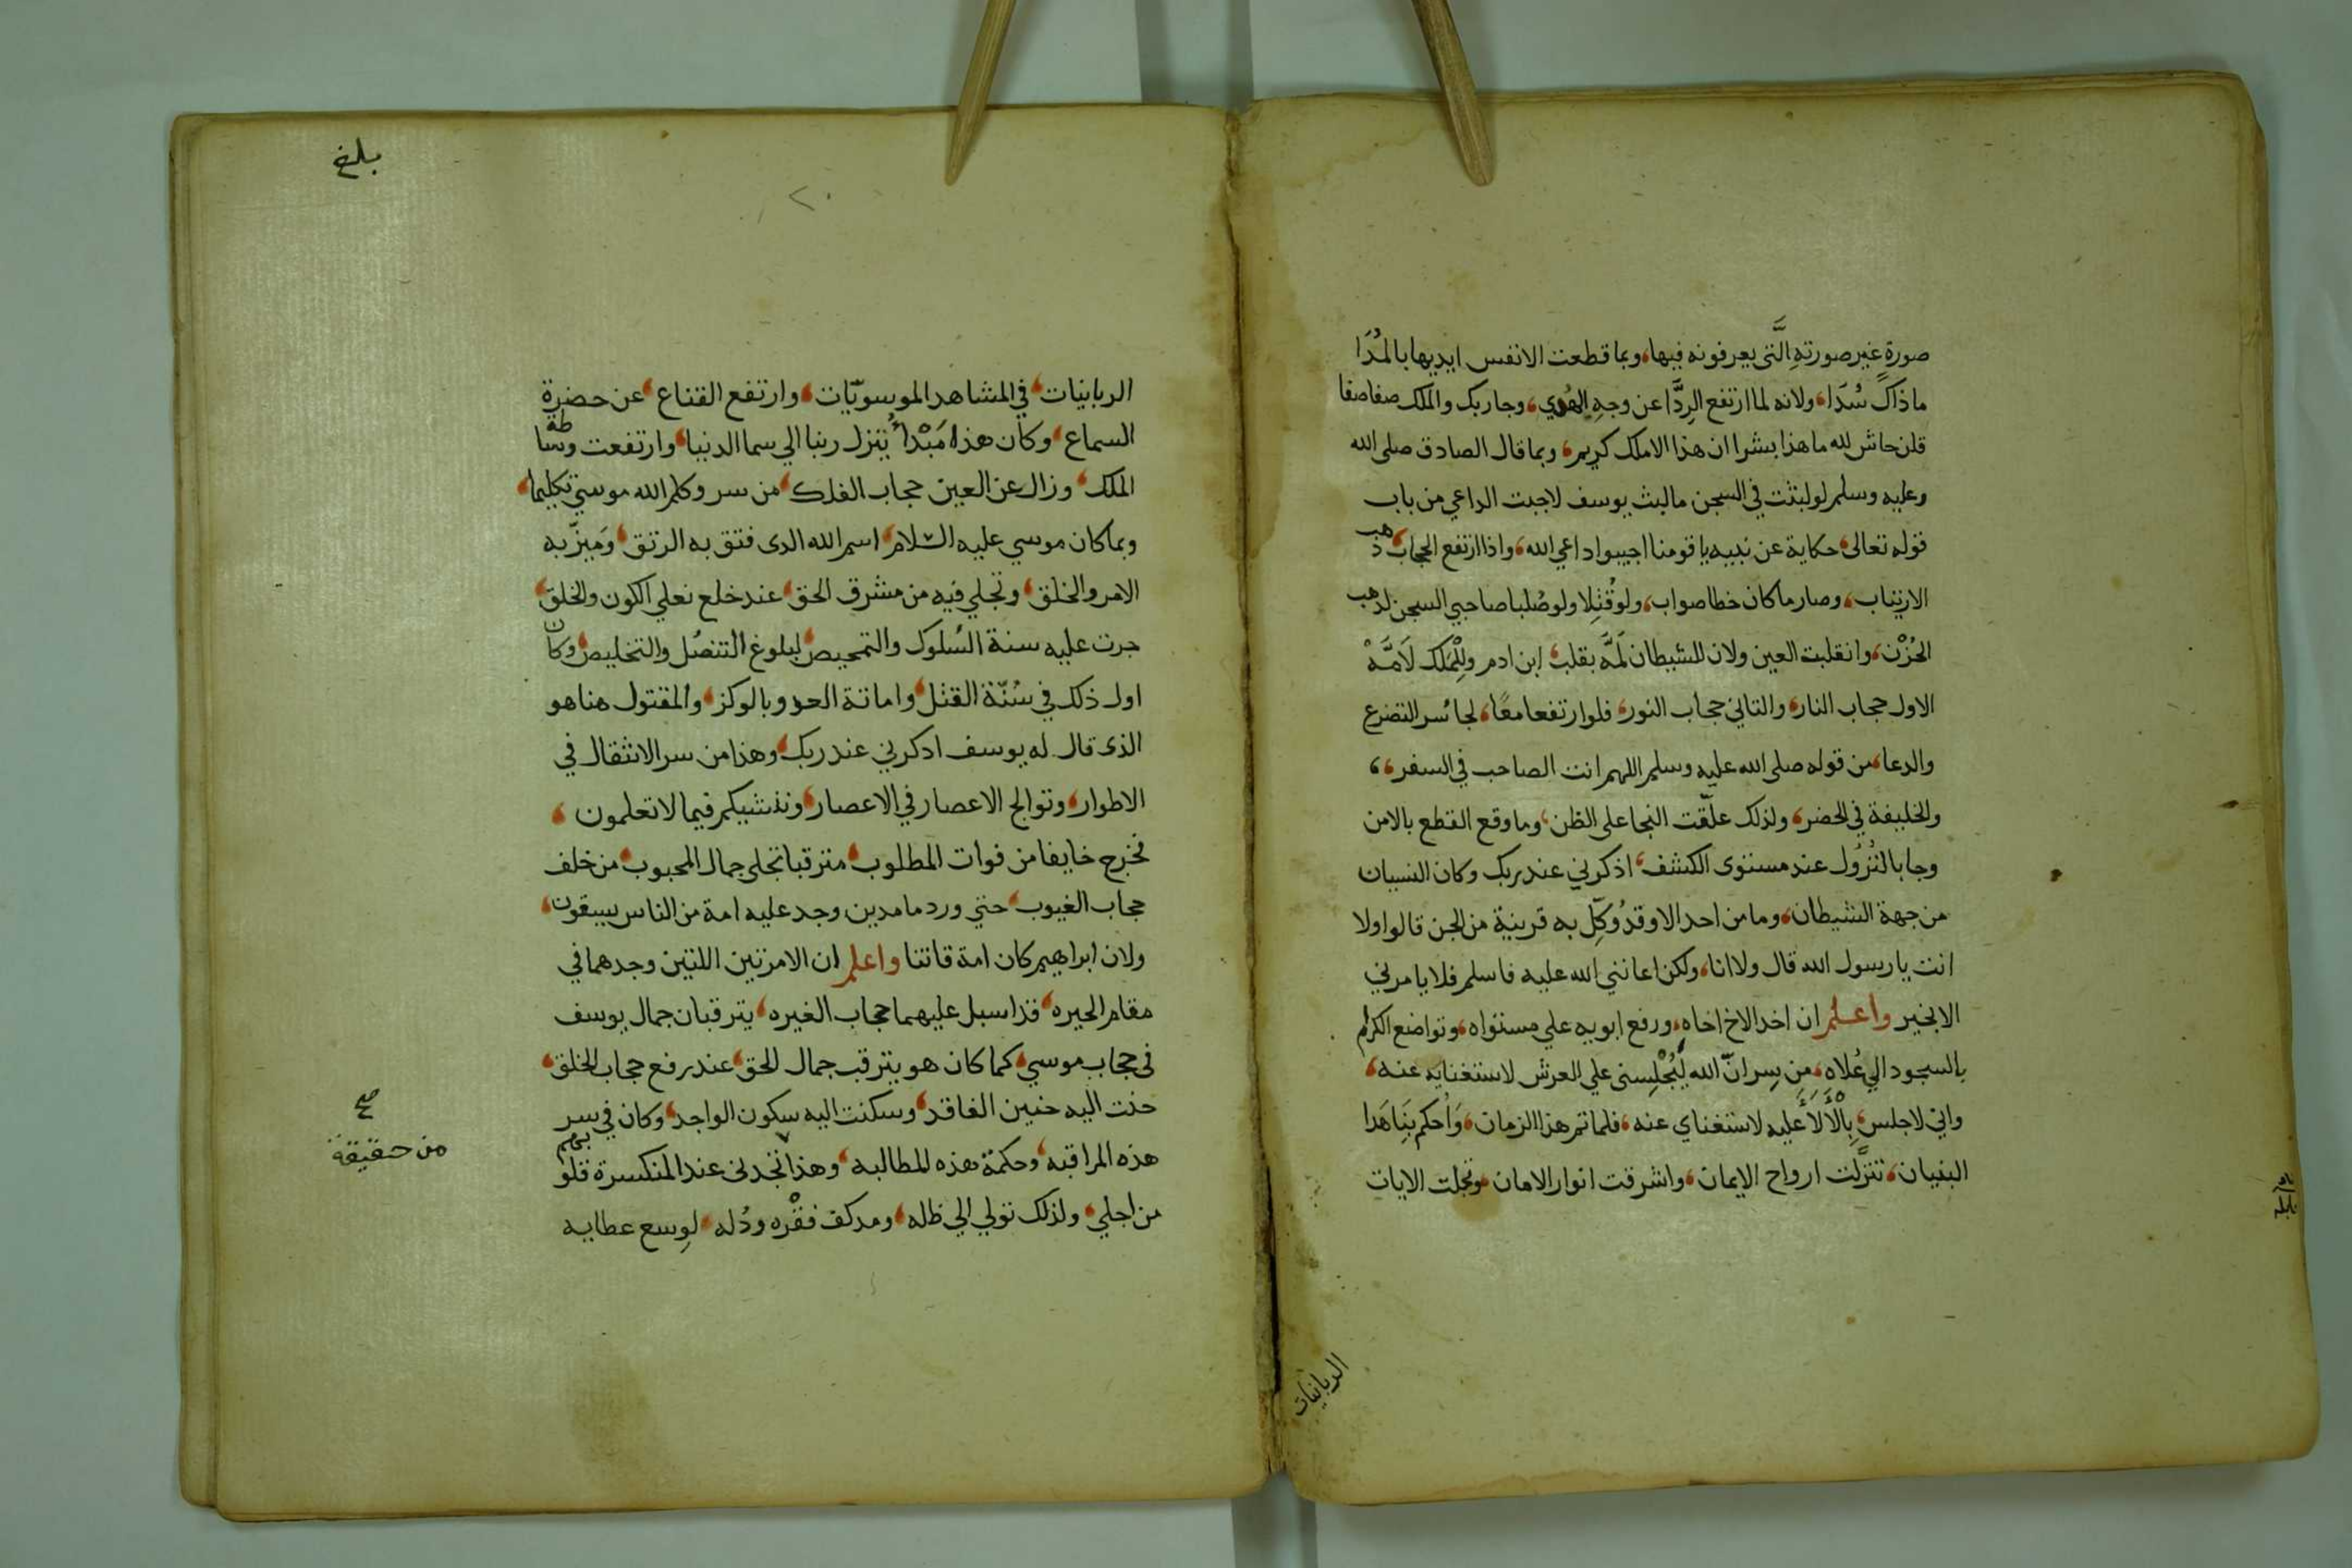 صورة غير صورته التي يعرفونه فيها، وبما قطعت الانفس ايديها بالمُدَا
ماذاك سُدَا، ولانه لما ارتفع الرِدَّا عن وجه الهُدي، وجا ربك والملك صفا صفا
قلن حاش لله ما هذا بشرا ان هذا الا ملك كريم، وبما قال الصادق صلى الله
وعليه وسلم لو لبثت في السجن ما لبث يوسف لاجبت الداعي من باب
قوله تعالى، حكاية عن نبيه يا قومنا اجيبوا داعي الله، واذا ارتفع الحجاب، ذهب
الارتياب، وصار ما كان خطا صواب، ولو قُتِلا ولو صُلبا صاحبي السجن لذهب
الحُزْن، وانقلبت العين ولان للشيطان لَمَّه بقلب، ابن ادم وللِمَلك لَامَّهْ
الاول حجاب النار، والثاني حجاب النور، فلو ارتفعا معًا، لجا سر التضرع
والدعا، من قوله صلى الله عليه وسلم اللهم انت الصاحب في السفر،،
والخليفة في الحضر، ولذلك علّقت النجا على الظن، وما وقع القطع بالامن
وجا بالنُزُول عند مستوى الكشف، اذكرني عند ربك وكان النسيان
من جهة الشيطان، وما من احد الا وقد وُكِّل به قرينة من الجن قالوا ولا
انت يا رسول الله قال ولا انا، ولكن اعانني الله عليه فاسلم فلا يامرني
الا بخير واعلم ان اخد الاخ اخاه، ورفع ابويه علي مستواه، وتواضع الكرام
بالسجود الي عُلاه، من سِر انّ الله لَيُجْلِسنى علي العرش لاستغنايه عنه،
واني لاجلس، بِالْأَلَأَ عليه لاستغناي عنه، فلما تم هذا الزمان، وَأُحكم بِنَا هَذا
البنيان، تنزَّلت ارواح الايمان، واشرقت انوار الامان، وتجلت الايات
الربانيات
بلغ
٢٠
الربانيات، في المشاهد الموسويّات، وارتفع القناع، عن حضرة
السماع، وكان هذا مَبْدأُ يتنزل ربنا الي سما الدنيا، وارتفعت وساطة
الملك، وزال عن العين حجاب الفلك، من سر وكلم الله موسى تكليما،
وبما كان موسي عليه السلام، اسم الله الدى فتق به الرتق، وَميزّ به
الامر والخلق، وتجلي فيه من مشرق الحق، عند خلع نعلي الكون والخلق،
جرت عليه سنة السُلوك والتمحيص، لبلوغ التنصُل والتخليص، وكان
اول ذلك في سُنّة القتل، واماتة العدو بالوكز، والمقتول هنا هو
الذى قال له يوسف ادكرني عند ربك، وهذا من سر الانتقال في
الاطوار، وتوالج الاعصار في الاعصار، وننشيكم فيما لا تعلمون،
فخرج خايفا من فوات المطلوب، مترقبا تجلى جمال المحبوب، من خلف
حجاب الغيوب، حتي ورد ما مدين وجد عليه امة من الناس يسقون،
ولان ابراهيم كان امة قانتا واعلم ان الامرتين اللتين وجدهما في
مقام الحيره، قد اسبل عليهما حجاب الغيره، يترقبان جمال يوسف
في حجاب موسي، كما كان هو يترقب جمال الحق، عند رفع حجاب الخلق،
حنت اليه حنين الفاقد، وسكنت اليه سكون الواجد، وكان في سر
هذه المراقبه، وحكمة هذه المطالبه، وهذا تجدنى عند المنكسرة قلوبهم
من اجلي، ولذلك تولي الي ظله، ومد كف فقْره ودُله، لوسع عطايه
صح
من حقيقة